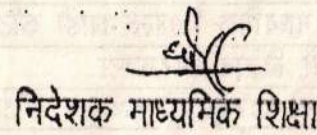 निदेशक माध्यमिक शिक्षा